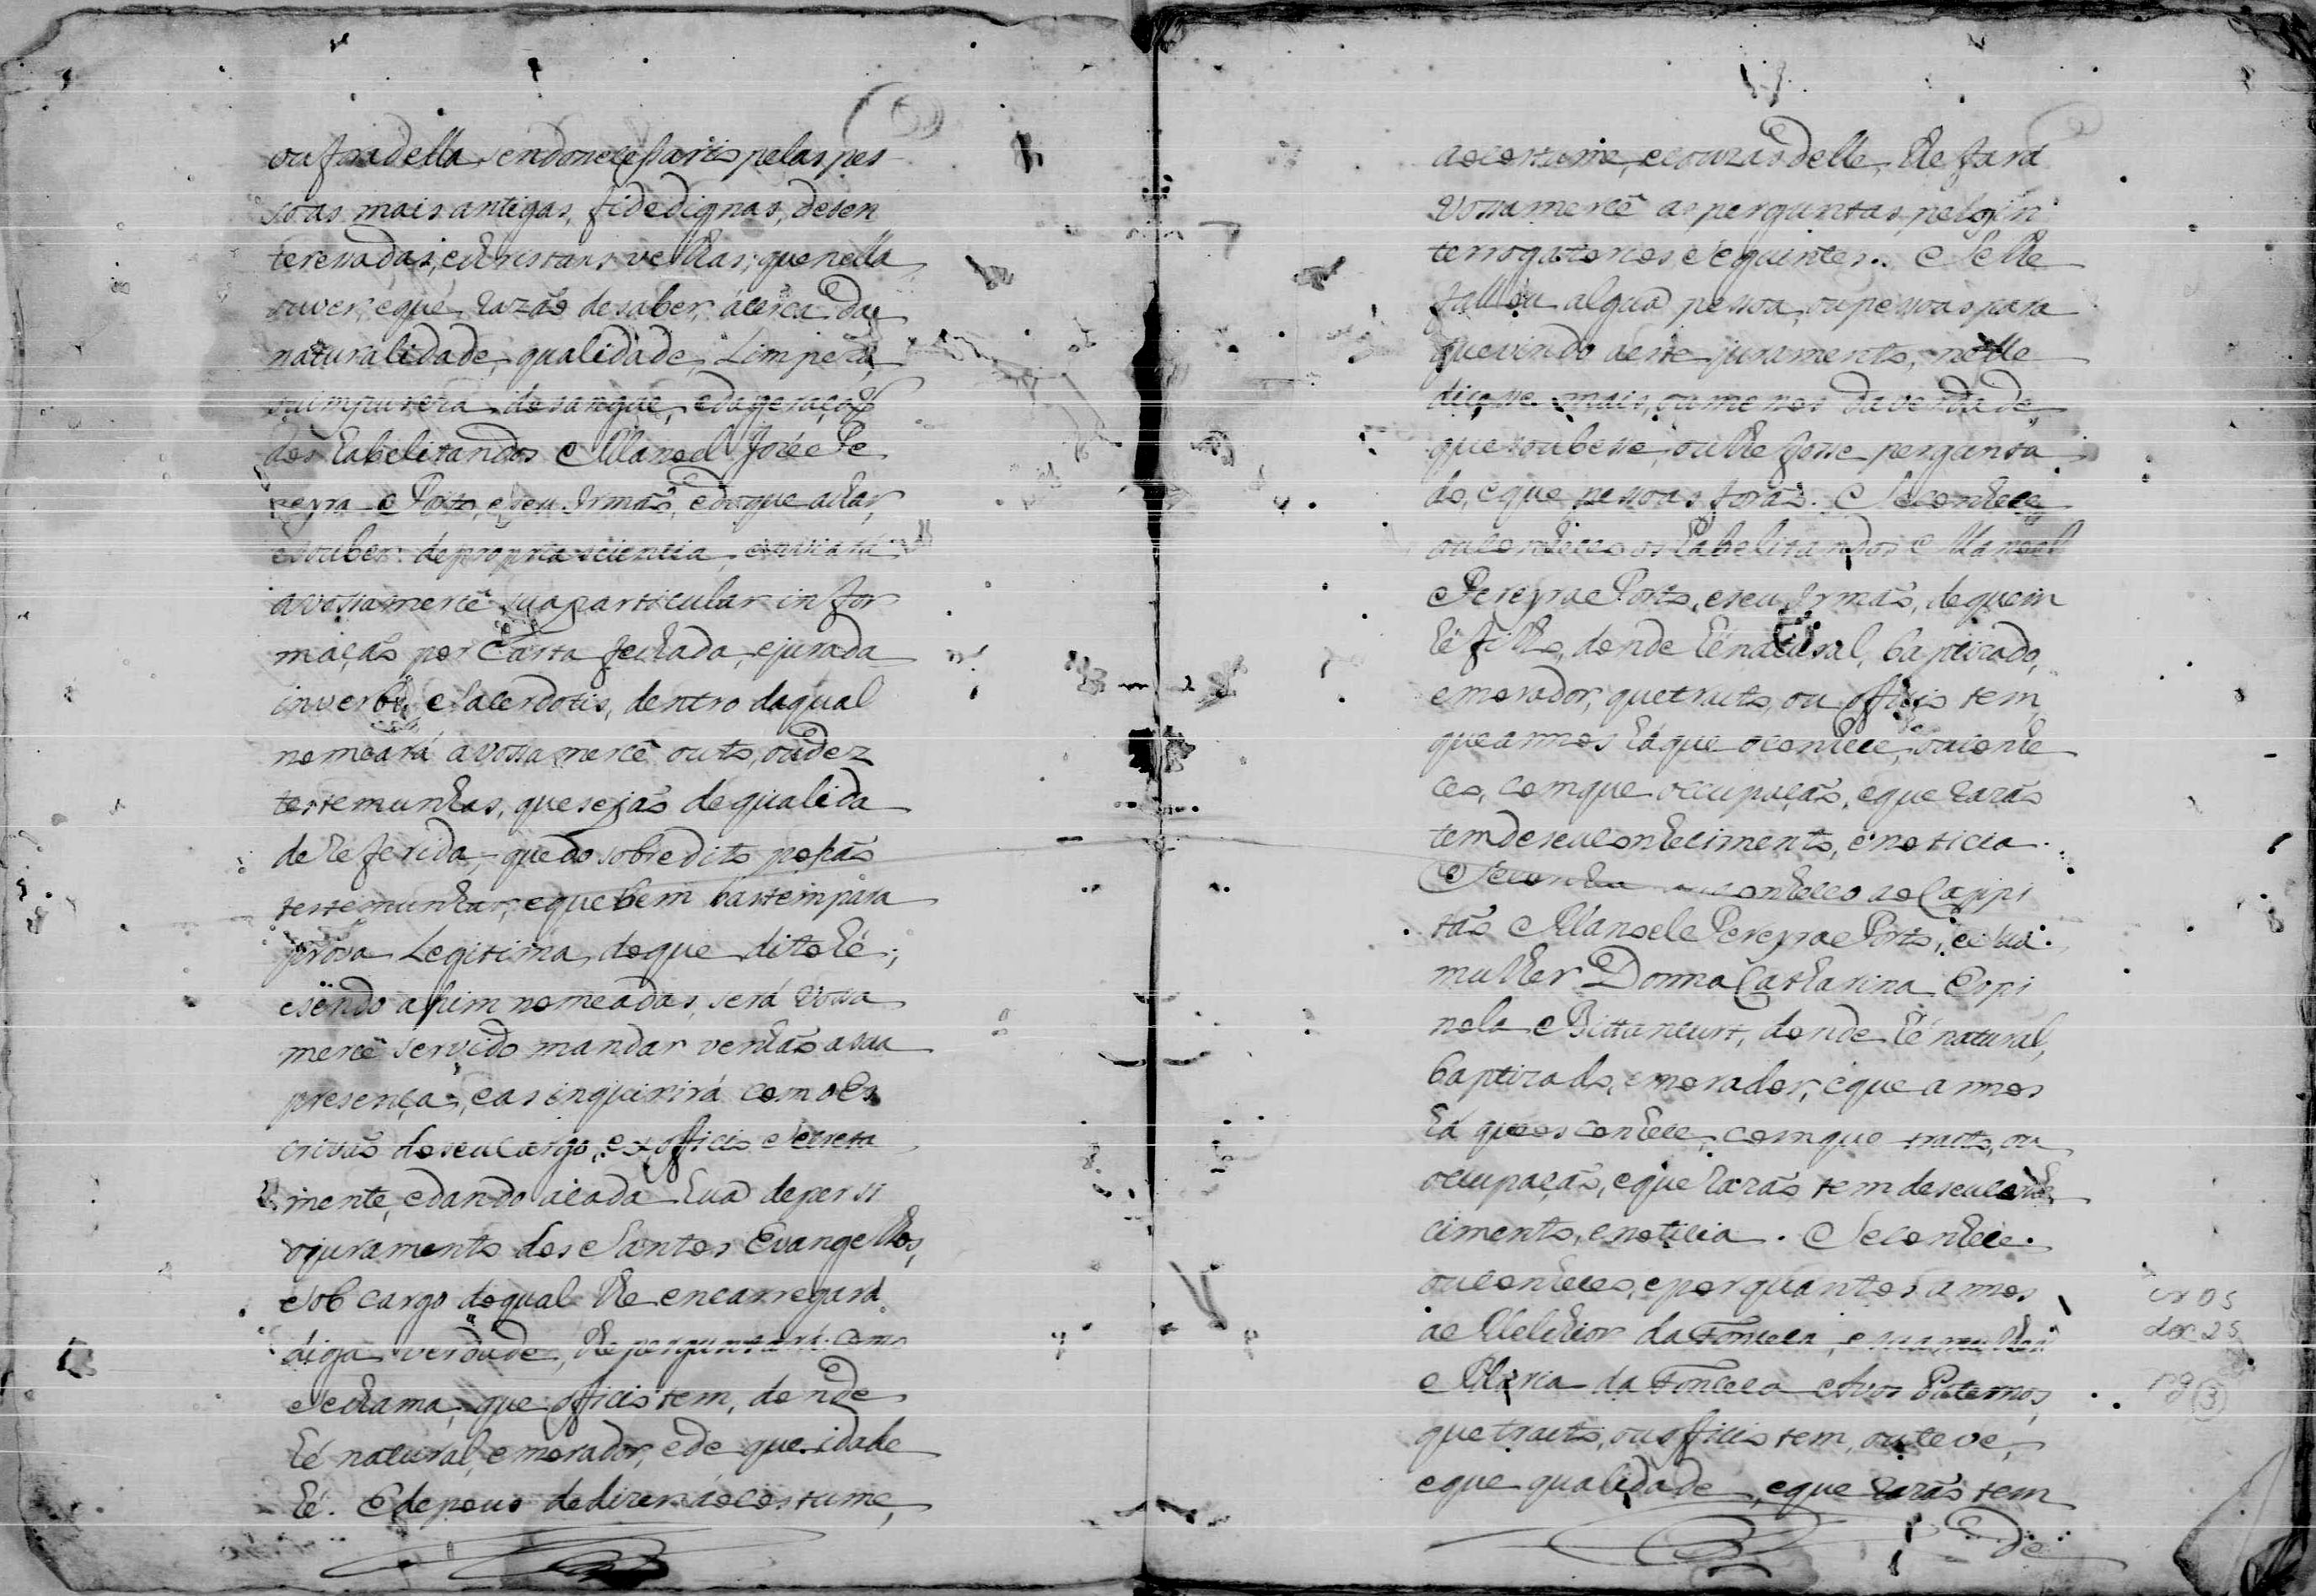 ou fora della, sendo necessario pelas pes
soas mais antigas, fidedignas, desen
teressadas, e christans velhas, que nella
ouver, e que razaõ de saber, ácerca da
naturalidade, qualidade, Limpeza,
ou impureza de sangue, e da geraçaõ
dos habelitandos Manoel Joze Pe
reyra Porto, e seu Irmaõ, e do que achar,
e souber de propria sciencia, enviará
a vossamercê sua particular infor
maçaõ por Carta fechada, e jurada
in verbo Sacerdotis, dentro da qual
nomeará a vossa mercê outo, ou dez
testemunhas, que sejaõ de qualida
de referida, que do sobredito possaõ
testemunhar, e que bem bastem para
prova Legitima, do que dito hé;
e sendo assim nomeadas, será vossa
mercê servido mandar venhaõ a sua
presença, e as inquirirá com o Es
crivaõ do seu Cargo, ex officio Secreta
mente, e dando á cada huã de per si
o juramento dos Santos Evangelhos,
e sob cargo do qual lhe encarregará
diga verdade, lhe perguntará como
se chama, que officio tem, donde
hé natural, e morador, e de que idade
hé. E depous de dizer ao costume,
ao costume, e couzas delle, lhe fará
vossamercê as perguntas pelos in
terrogatorios seguintes. Se lhe
fallou algua pessoa, ou pessoas para
que vindo a este juramento, nelle
dicesse mais, ou menos da verdade
que soubesse, ou lhe fosse pergunta
do, e que pessoas foraõ. Se conhece
ou conheceo os habelitandos Manoel
Pereyra Porto, e seu Irmaõ, de quem
hé filho, donde hé natural, baptizado,
e morador, que tracto, ou officio tem
que annos há que o conhece, ou conhe
ceo, com que occupaçaõ, e que razaõ
tem de seu conhecimento, e noticia.
Se conhece ou conheceo ao Cappi
taõ Manoel Pereyra Porto, e sua
mulher Donna Catharina Espi
nola Bittancurt, donde hé natural,
baptizado, e morador, e que annos
há que os conhece, com que tracto, ou
occupaçaõ, e que razaõ tem de seu conhe
cimento, e noticia. Se conhece
ou conheceo, e por quantos annos
a Melchior da Fonceca, e sua mulher
Maria da Fonceca Avos Paternos,
que tracto, ou officio tem, ou teve,
e que qualidade, e que razaõ tem
De
cx 05
doc 25
pg 3